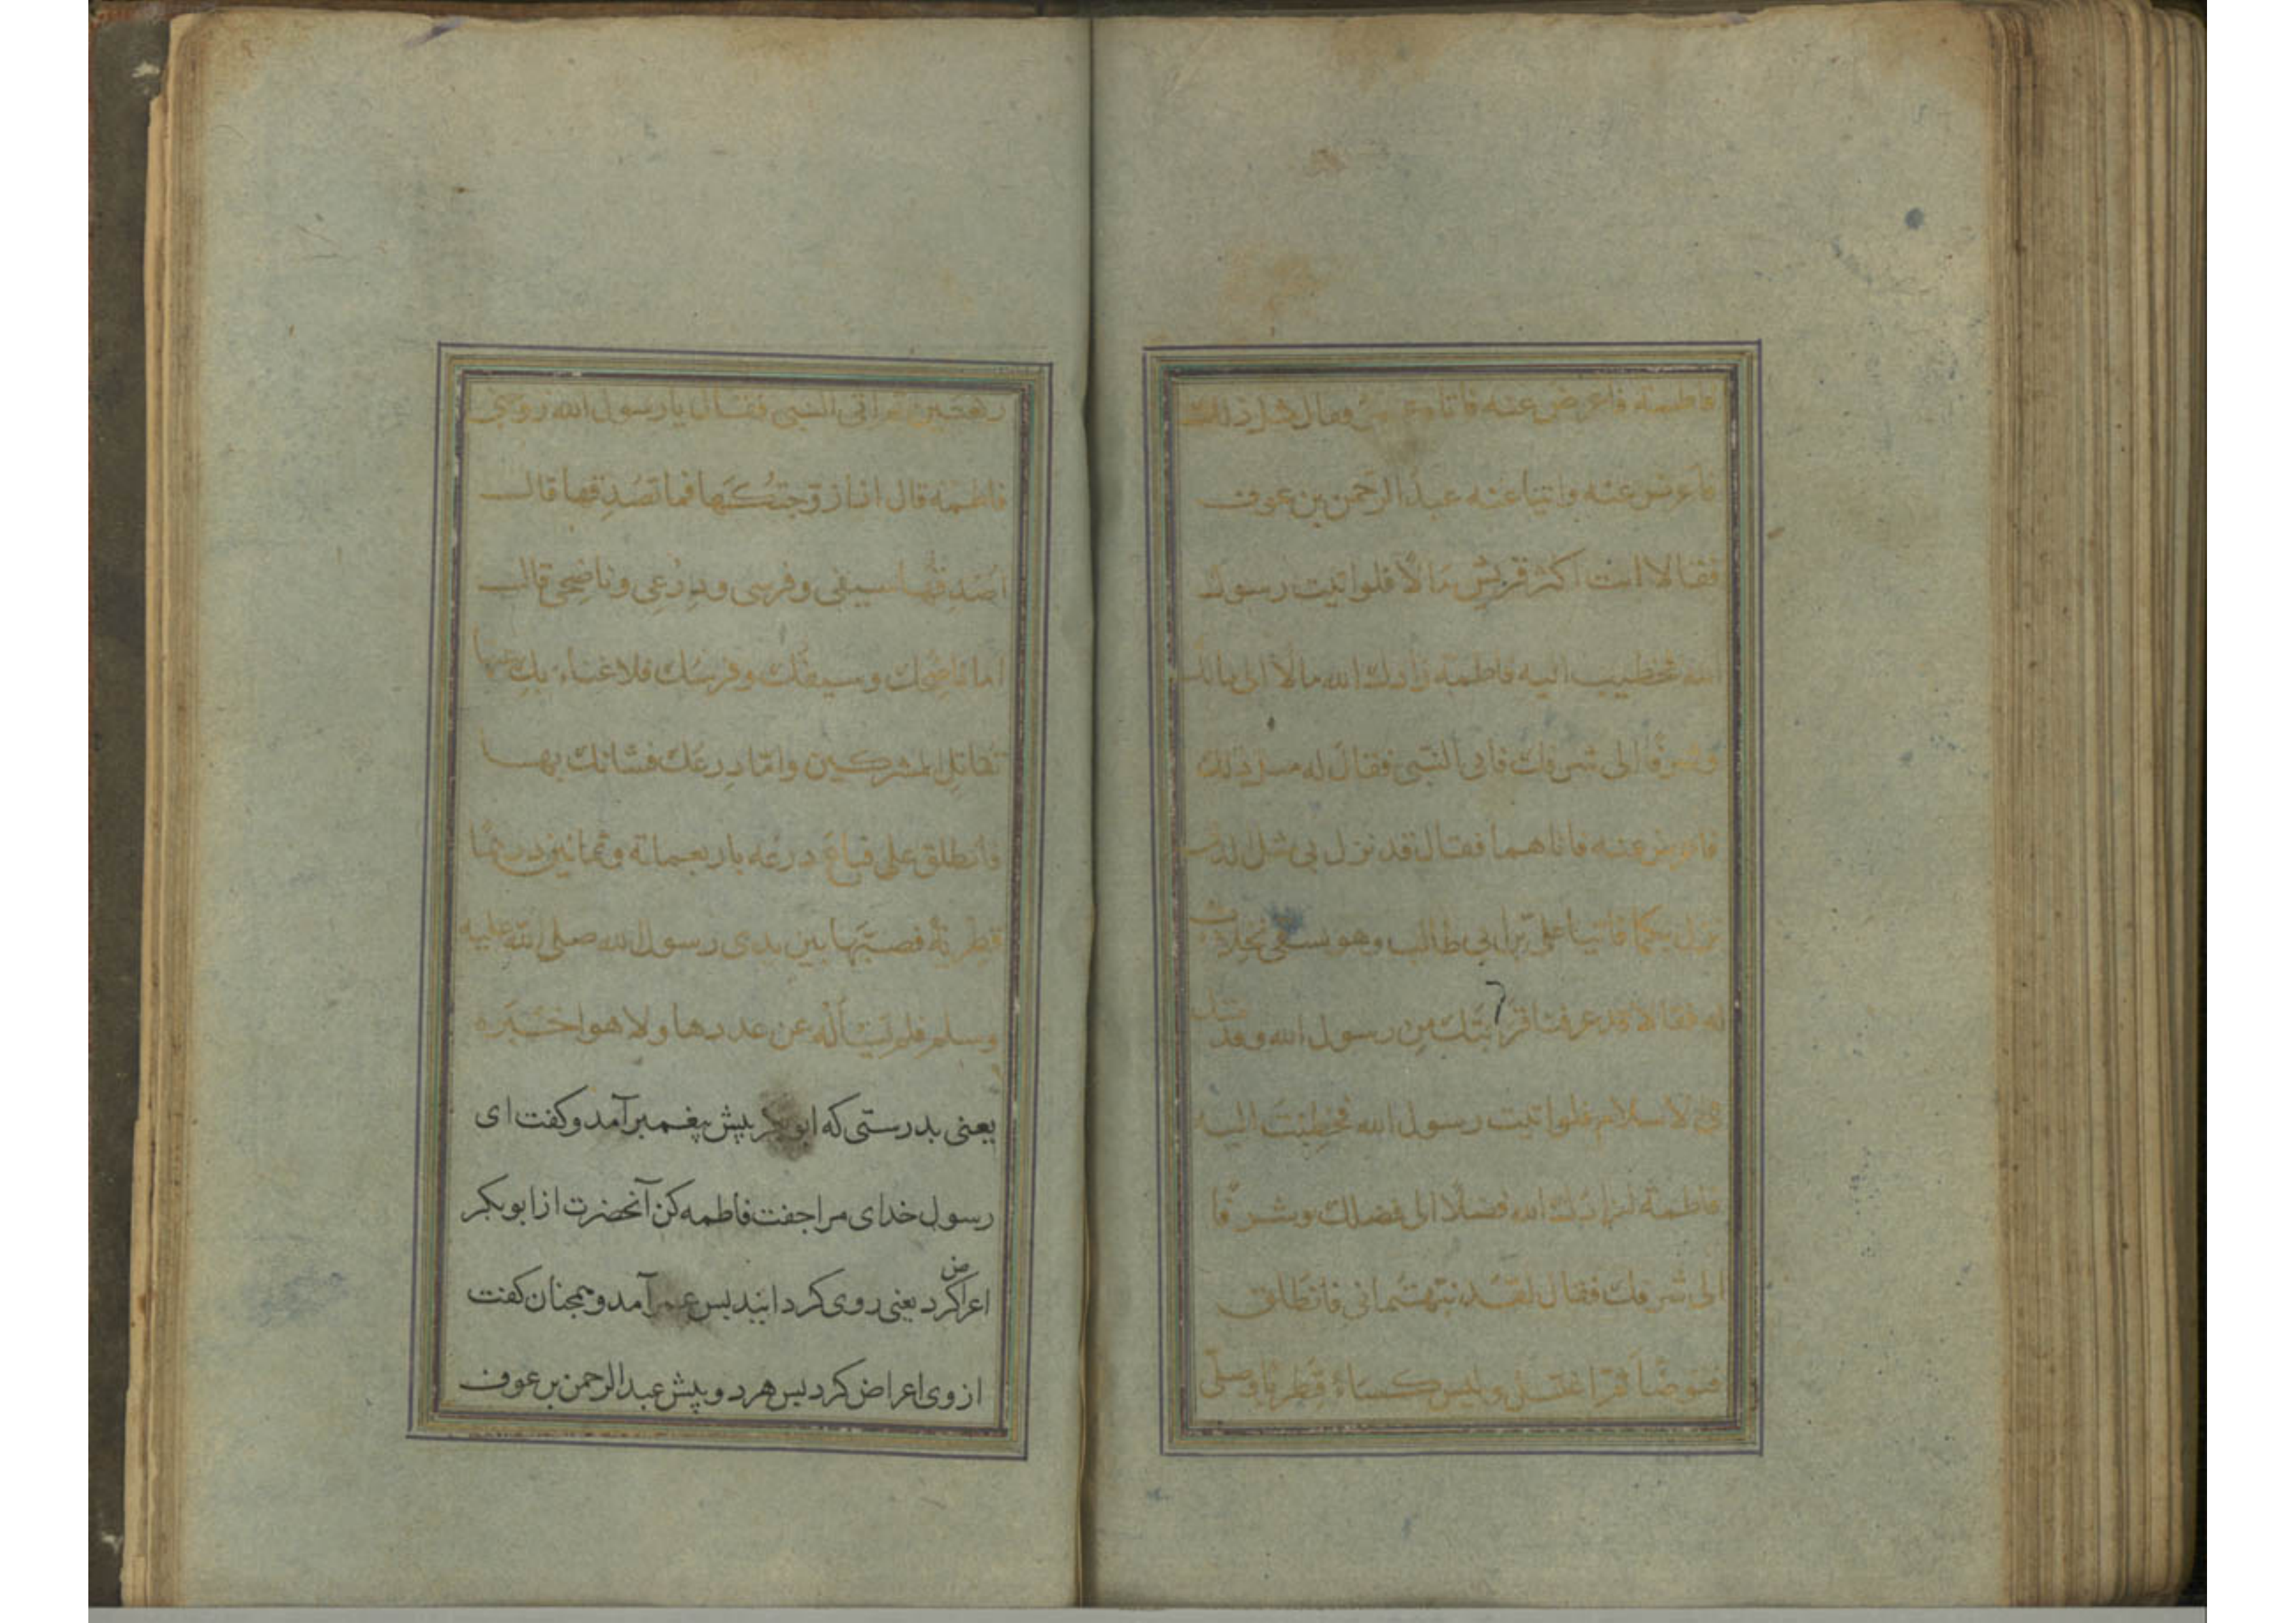 فاطمة فاعرض عنه فاتاه عمر وقال مثل ذلك
فاعرض عنه واتيا عنه عبد الرحمن بن عوف
فقالا انت اكثر قريش مالًا فلو اتيت رسول
الله فخطيب اليه فاطمة زادك الله مالًا الى مالك
وشرفًا الى شرفك فاتى النبى فقال له مثل ذلك
فاعرض عنه فاتاهما فقال قد نزل بى مثل الذى
نزل بكما فاتيا على بن ابى طالب وهو يسقى نخلات
له فقالا قد عرفنا قرابتك من رسول الله وقد
فى الاسلام فلو اتيت رسول الله فخطبت اليه
فاطمة لزادك الله فضلًا الى فضلك وشرفًا
الى شرفك فقال لقد نبهتمانى فانطلق
فتوضأ ثم اغتسل ولبس كساءً قطريًا وصلّى
ركعتين ثم اتى النبى فقال يا رسول الله زوجنى
فاطمة قال اذا زوجتكها فما تصدقها قال
اصدقها سيفى وفرسى ودرعى وناضحى قال
اما ناضحك وسيفك وفرسك فلا غناء بك عنها
تقاتل المشركين وامّا درعك فشانك بها
فانطلق على فباع درعه باربعمائة وثمانين درهمًا
قطرية فصبّها بين يدى رسول الله صلى الله عليه
وسلم فلم يسأله عن عددها ولا هو اخبره
يعنى بدرستى كه ابوبكر پيش پيغمبر آمد و كفت اى
رسول خداى مرا جفت فاطمه كن آنحضرت از ابوبكر
اعراض كرد يعنى روى كردانيد پس عمر آمد و همچنان كفت
از وى اعراض كرد پس هر دو پيش عبد الرحمن بن عوف